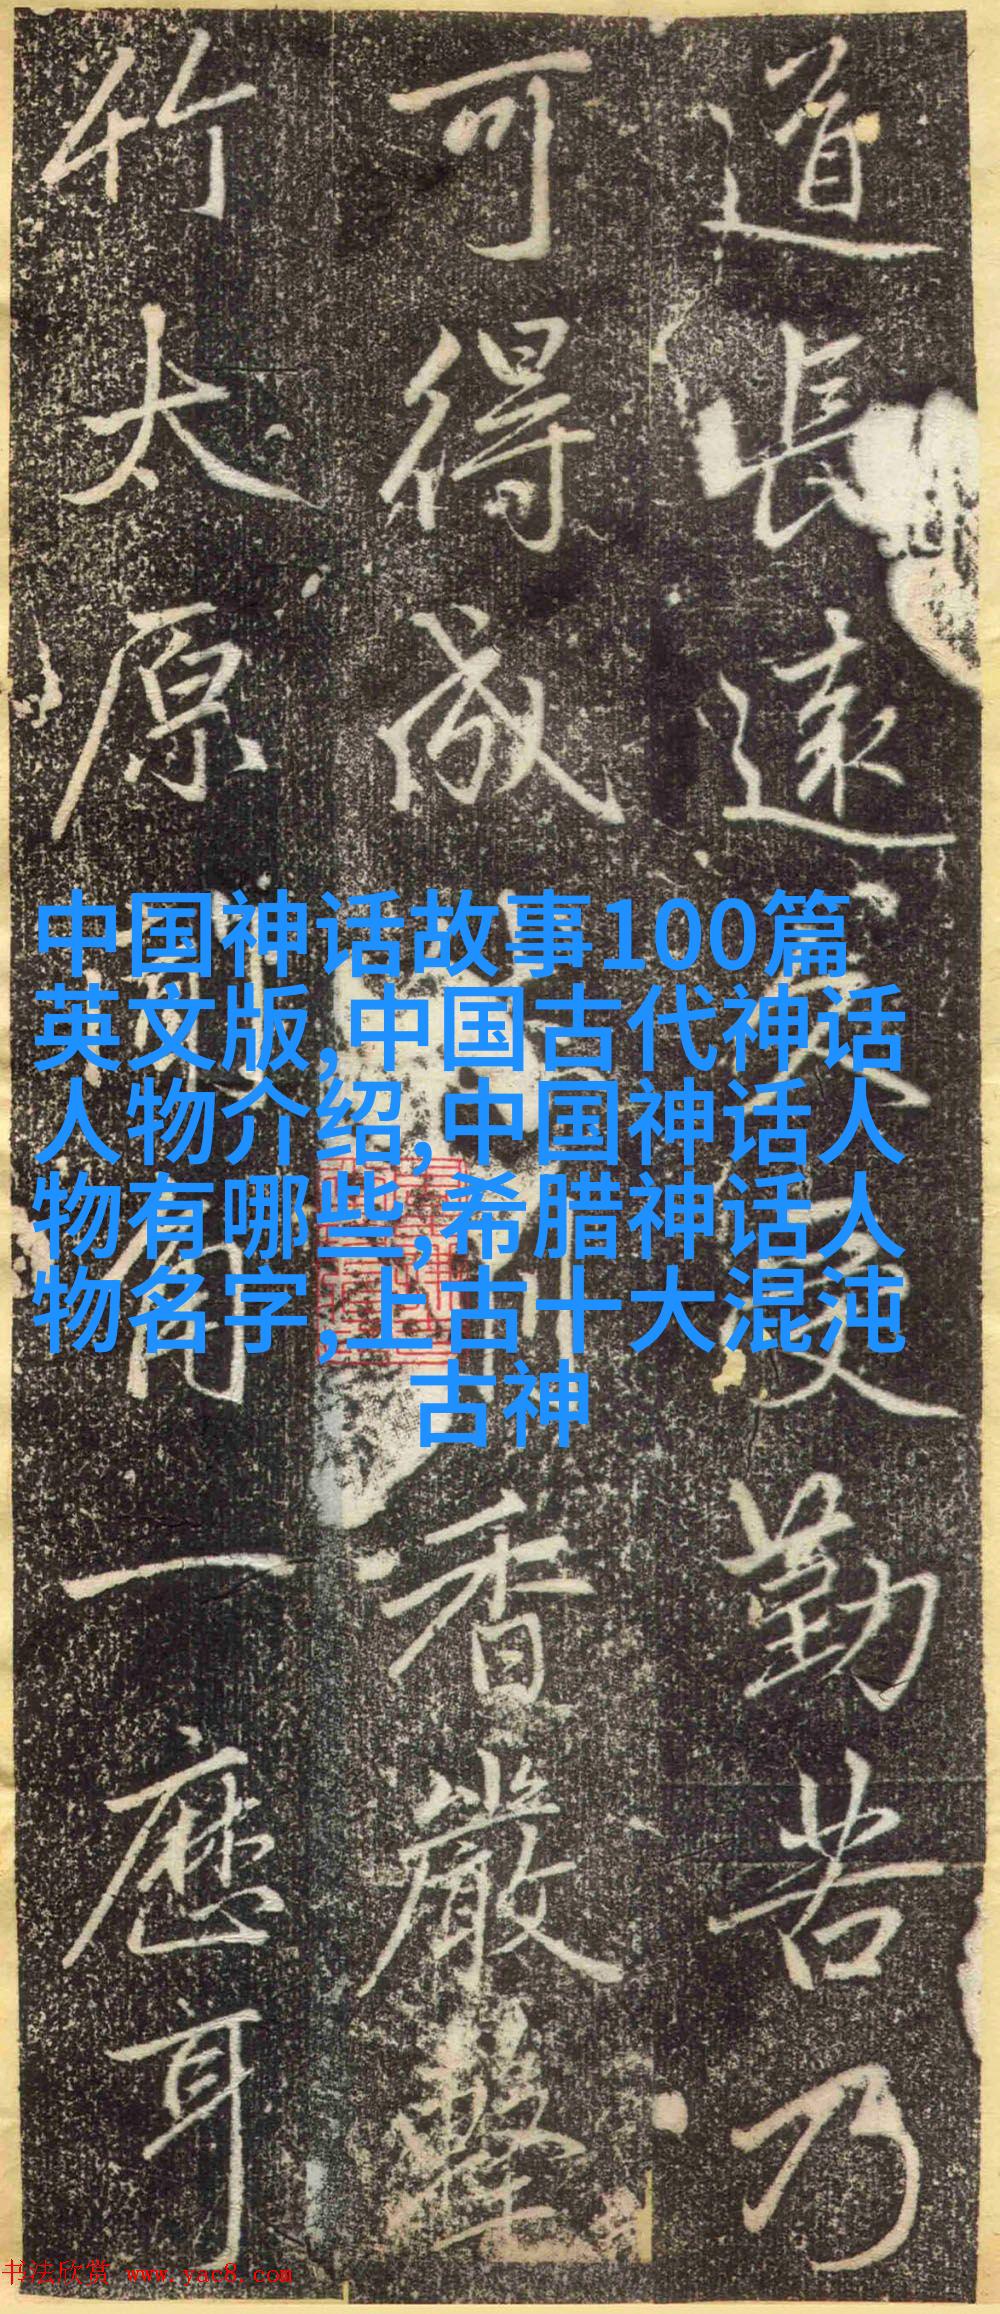 道長遠受勤苦乃
可得成香嚴擊
竹太原一應耳
中国神话故事100篇
英文版,中国古代神话
人物介绍,中国神话人
物有哪些,希腊神话人
物名字,上古十大混沌
古神
书法欣赏 www.yac8.com